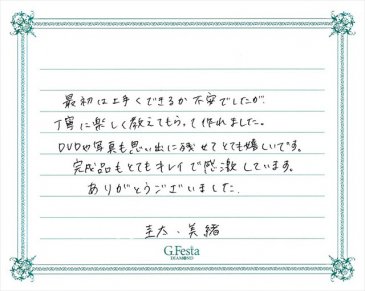 最初は上手くできるか不安でしたが
丁寧に楽しく教えてもらって作れました。
DVDや写真も思い出に残せてとても嬉しいです。
完成品もとてもキレイで感激しています。
ありがとうございました.
圭太・美緒
G.Festa
DIAMOND